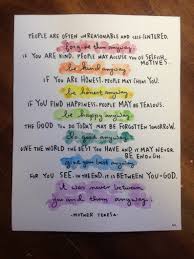 PEOPLE ARE OFTEN UNREASONABLE AND SELF-CENTERED.
forgive them anyway.
IF YOU ARE KIND, PEOPLE MAY ACCUSE YOU OF SELFISH
MOTIVES.
be kind anyway.
IF YOU ARE HONEST, PEOPLE MAY THEM YOU.
be honest anyway.
IF YOU FIND HAPPINESS, PEOPLE MAY BE JEALOUS.
be happy anyway.
THE GOOD YOU DO TODAY MAY BE FORGOTTEN TOMORROW.
do good anyway.
GIVE THE WORLD THE BEST YOU HAVE AND IT MAY NEVER
BE ENOUGH.
give your best anyway.
FOR YOU SEE, IN THE END, IT IS BETWEEN YOU + GOD.
it was never between
you and them anyway.
-MOTHER TERESA-